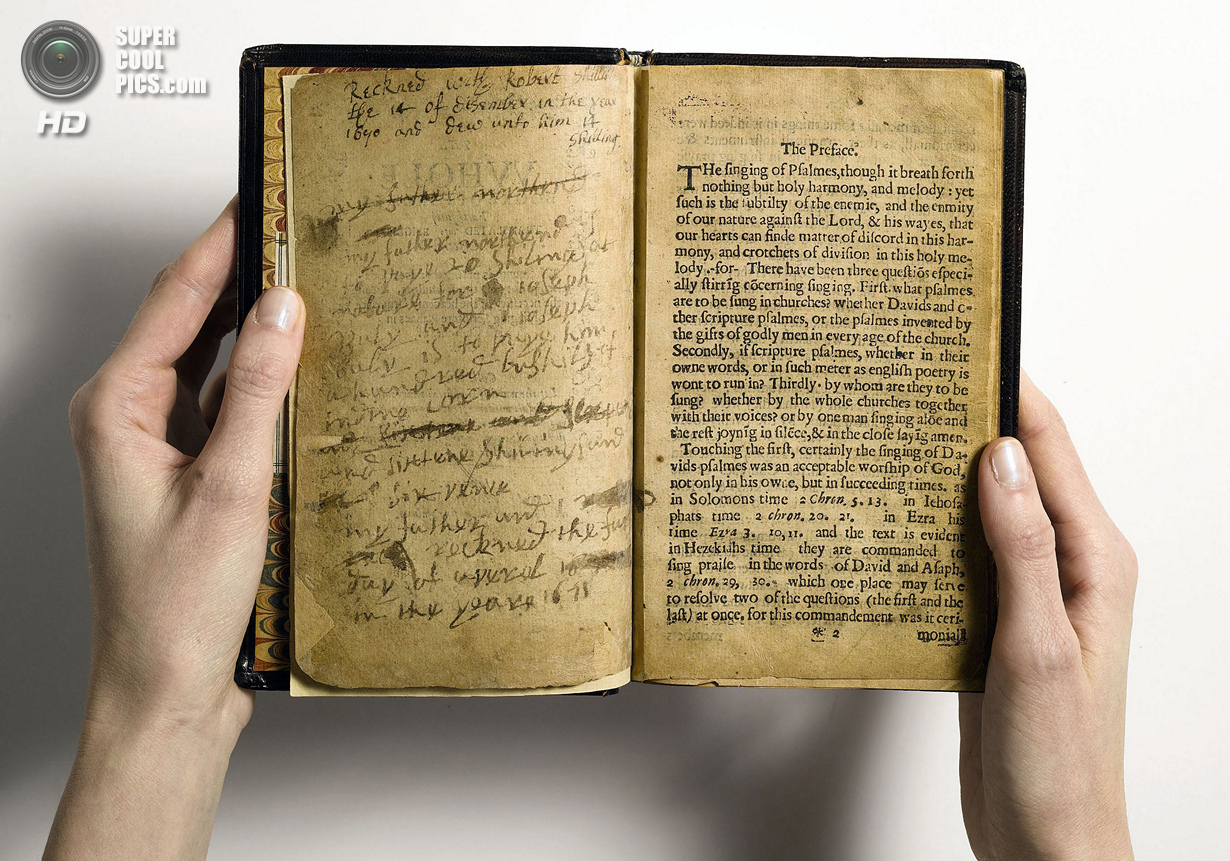 SUPER
COOL
PICS.com
HD
Reckned with Robert Shilli
the 14 of disember in the year
1690 and dew unto him 14
Shilling
my father northend
my father northend
20 Shilings
for Joseph
and Joseph
is to paye him
a hundred bushils of
corn
and sixtene Shilings and
six penc
my father and I
reckned the fur
day of aperel
in the yeare 1671
The Preface.
THe ſinging of Pſalmes,though it breath forth
nothing but holy harmony, and melody : yet
ſuch is the ſubtilty of the enemie, and the enmity
of our nature againſt the Lord, & his wayes, that
our hearts can finde matter of diſcord in this har-
mony, and crotchets of diviſion in this holy me-
lody .-for- There have been three queſtiõs eſpeci-
ally ſtirrĩg cõcerning ſinging. Firſt. what pſalmes
are to be ſung in churches? whether Davids and o-
ther ſcripture pſalmes, or the pſalmes invented by
the gifts of godly men in every age of the church.
Secondly, if ſcripture pſalmes, whether in their
owne words, or in ſuch meter as engliſh poetry is
wont to run in? Thirdly. by whom are they to be
ſung? whether by the whole churches together
with their voices? or by one man ſinging alõe and
the reſt joynĩg in ſilẽce,& in the cloſe ſayĩg amen.
Touching the firſt, certainly the ſinging of Da-
vids pſalmes was an acceptable worſhip of God,
not only in his owne, but in ſucceeding times. as
in Solomons time 2 Chron. 5. 13. in Iehoſa-
phats time 2 chron. 20. 21. in Ezra his
time Ezra 3. 10,11. and the text is evident
in Hezekiahs time they are commanded to
ſing praiſe in the words of David and Aſaph,
2 chron. 29, 30. which one place may ſerve
to reſolve two of the queſtions (the firſt and the
laſt) at once. for this commandement was it ceri-
* 2 moniall